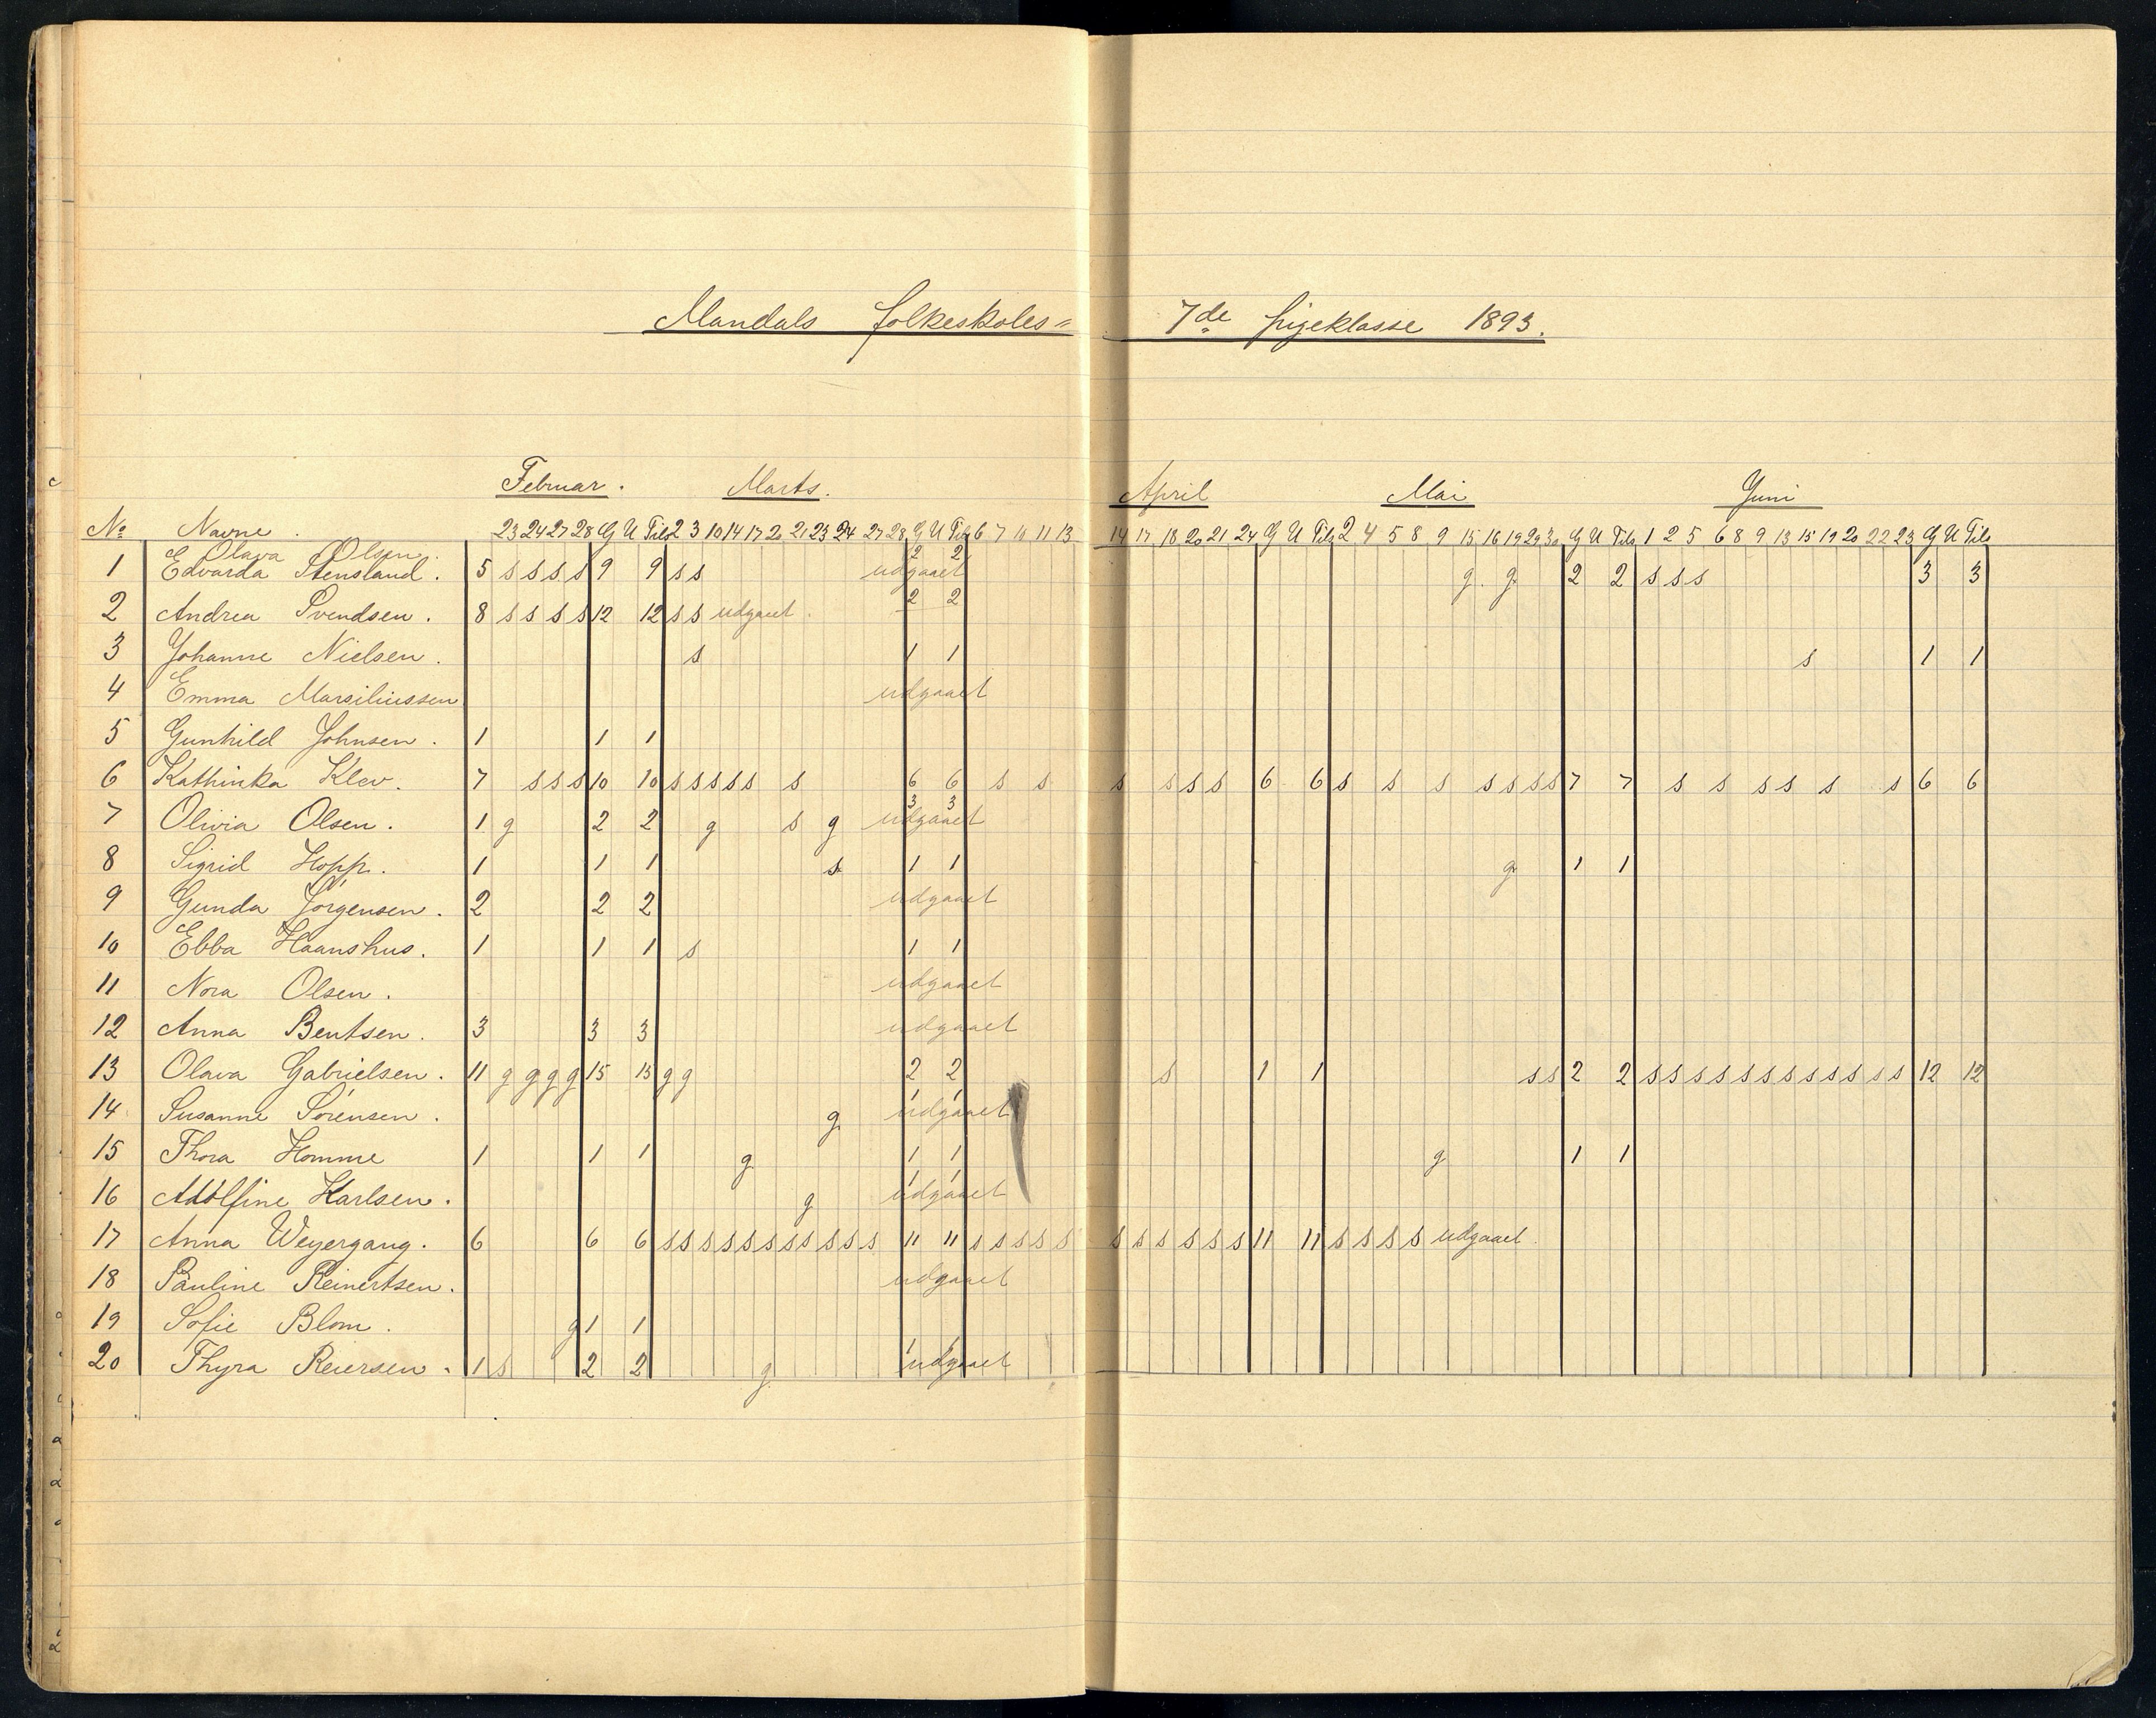 Mandals folkeskoles= 7de pigeklasse 1893.
Februar. Marts. April Mai Juni
No Navne. 23 24 27 28 G U Tils 2 3 10 14 17 20 21 23 24 27 28 G U Tils 6 7 10 11 13 14 17 18 20 21 24 G U Tils 2 4 5 8 9 15 16 19 29 30 G U Tils 1 2 5 6 8 9 13 15 19 20 22 23 G U Tils
Olava Olsen. 2 2
1 Edvarda Stensland. 5 s s s s 9 9 s s udgaaet g. g. 2 2 s s s 3 3
2 Andrea Svendsen. 8 s s s s 12 12 s s udgaaet. 2 2
3 Johanne Nielsen. s 1 1 s 1 1
4 Emma Marsiliussen udgaaet
5 Gunhild Johnsen. 1 1 1
6 Kathinka Klev. 7 s s s 10 10 s s s s s s 6 6 s s s s s s 6 6 s s s s s s s 7 7 s s s s s s 6 6
7 Olivia Olsen. 1 g 2 2 g s g udgaaet 3 3
8 Sigrid Hopp. 1 1 1 s 1 1 g 1 1
9 Gunda Jörgensen. 2 2 2 udgaaet
10 Ebba Haanshus. 1 1 1 s 1 1
11 Nora Olsen. udgaaet
12 Anna Bentsen. 3 3 3 udgaaet
13 Olava Gabrielsen. 11 g g g g 15 15 g g 2 2 s 1 1 s s 2 2 s s s s s s s s s s s s 12 12
14 Susanne Sörensen. g 1 1 udgaaet
15 Thora Homme 1 1 1 g 1 1 g 1 1
16 Adolfine Karlsen. g 1 1 udgaaet
17 Anna Weyergang. 6 6 6 s s s s s s s s s s s 11 11 s s s s s s s s s s s 11 11 s s s s udgaaet.
18 Pauline Reinertsen. udgaaet
19 Sofie Blom. g 1 1
20 Thyra Reiersen. 1 s 2 2 g 1 1 udgaaet